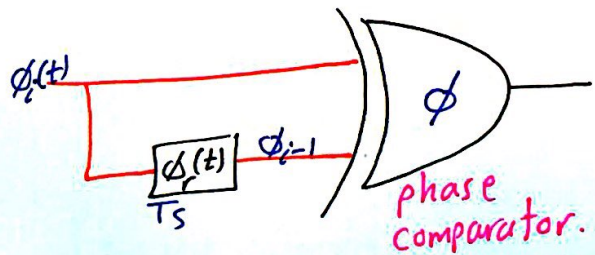 ϕᵢ(t)
ϕ
ϕᵣ(t)
ϕᵢ₋₁
Ts
phase
comparator.